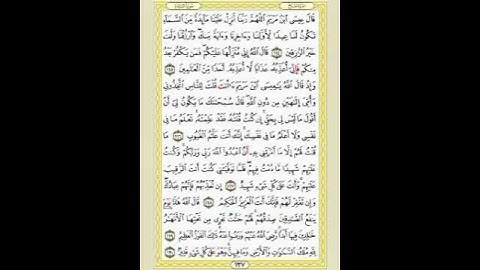 قَالَ عِيسَى ٱبْنُ مَرْيَمَ ٱللَّهُمَّ رَبَّنَآ أَنزِلْ عَلَيْنَا مَآئِدَةً مِّنَ ٱلسَّمَآءِ
تَكُونُ لَنَا عِيدًا لِّأَوَّلِنَا وَءَاخِرِنَا وَءَايَةً مِّنكَ وَٱرْزُقْنَا وَأَنتَ
خَيْرُ ٱلرَّٰزِقِينَ ١١٤ قَالَ ٱللَّهُ إِنِّي مُنَزِّلُهَا عَلَيْكُمْ فَمَن يَكْفُرْ بَعْدُ
مِنكُمْ فَإِنِّيٓ أُعَذِّبُهُۥ عَذَابًا لَّآ أُعَذِّبُهُۥٓ أَحَدًا مِّنَ ٱلْعَٰلَمِينَ ١١٥
وَإِذْ قَالَ ٱللَّهُ يَٰعِيسَى ٱبْنَ مَرْيَمَ ءَأَنتَ قُلْتَ لِلنَّاسِ ٱتَّخِذُونِي
وَأُمِّيَ إِلَٰهَيْنِ مِن دُونِ ٱللَّهِ قَالَ سُبْحَٰنَكَ مَا يَكُونُ لِيٓ أَنْ
أَقُولَ مَا لَيْسَ لِي بِحَقٍّ إِن كُنتُ قُلْتُهُۥ فَقَدْ عَلِمْتَهُۥ تَعْلَمُ مَا فِي
نَفْسِي وَلَآ أَعْلَمُ مَا فِي نَفْسِكَ إِنَّكَ أَنتَ عَلَّٰمُ ٱلْغُيُوبِ ١١٦ مَا
قُلْتُ لَهُمْ إِلَّا مَآ أَمَرْتَنِي بِهِۦٓ أَنِ ٱعْبُدُوا۟ ٱللَّهَ رَبِّي وَرَبَّكُمْ وَكُنتُ
عَلَيْهِمْ شَهِيدًا مَّا دُمْتُ فِيهِمْ فَلَمَّا تَوَفَّيْتَنِي كُنتَ أَنتَ ٱلرَّقِيبَ
عَلَيْهِمْ وَأَنتَ عَلَىٰ كُلِّ شَيْءٍ شَهِيدٌ ١١٧ إِن تُعَذِّبْهُمْ فَإِنَّهُمْ عِبَادُكَ
وَإِن تَغْفِرْ لَهُمْ فَإِنَّكَ أَنتَ ٱلْعَزِيزُ ٱلْحَكِيمُ ١١٨ قَالَ ٱللَّهُ هَٰذَا يَوْمُ
يَنفَعُ ٱلصَّٰدِقِينَ صِدْقُهُمْ لَهُمْ جَنَّٰتٌ تَجْرِي مِن تَحْتِهَا ٱلْأَنْهَٰرُ
خَٰلِدِينَ فِيهَآ أَبَدًا رَّضِيَ ٱللَّهُ عَنْهُمْ وَرَضُوا۟ عَنْهُ ذَٰلِكَ ٱلْفَوْزُ ٱلْعَظِيمُ ١١٩
لِلَّهِ مُلْكُ ٱلسَّمَٰوَٰتِ وَٱلْأَرْضِ وَمَا فِيهِنَّ وَهُوَ عَلَىٰ كُلِّ شَيْءٍ قَدِيرٌ ١٢٠
١٢٧